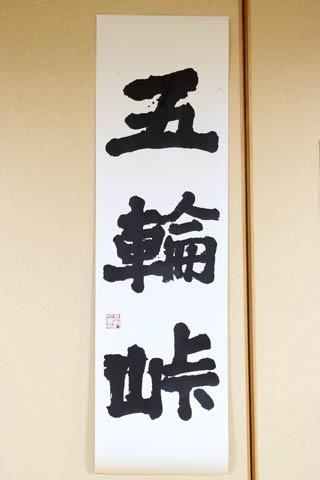 五輪峠